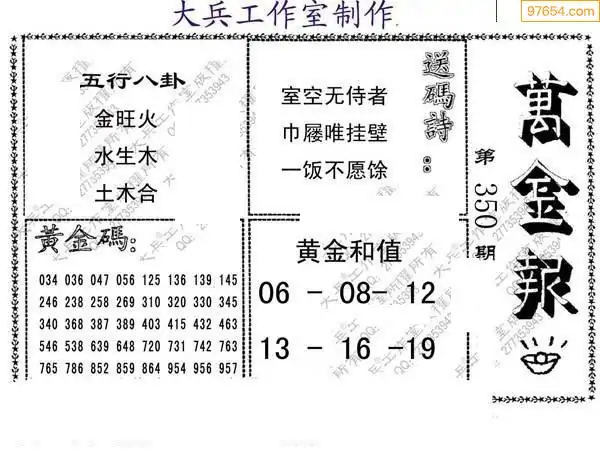 大兵工作室制作
97654.com
五行八卦
金旺火
水生木
土木合
送碼詩:
室空无侍者
巾屦唯挂壁
一饭不愿馀
萬金報
第350期
黃金碼:
034 036 047 056 125 136 139 145
246 238 258 269 310 320 330 345
340 368 387 389 403 415 432 463
546 538 639 648 720 731 742 763
765 786 852 859 864 954 956 957
黄金和值
06 - 08- 12
13 - 16 -19